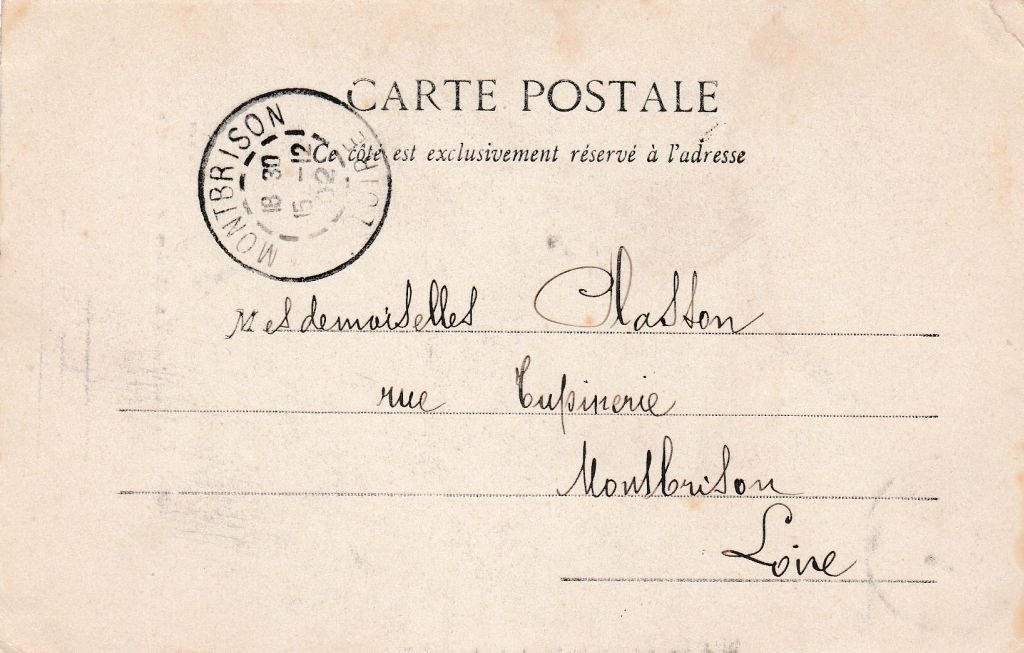 CARTE POSTALE
Ce côté est exclusivement réservé à l'adresse
MONTBRISON
LOIRE
18 30
15 -12
02
Mesdemoiselles Classon
rue Tupinerie
Montbrison
Loire